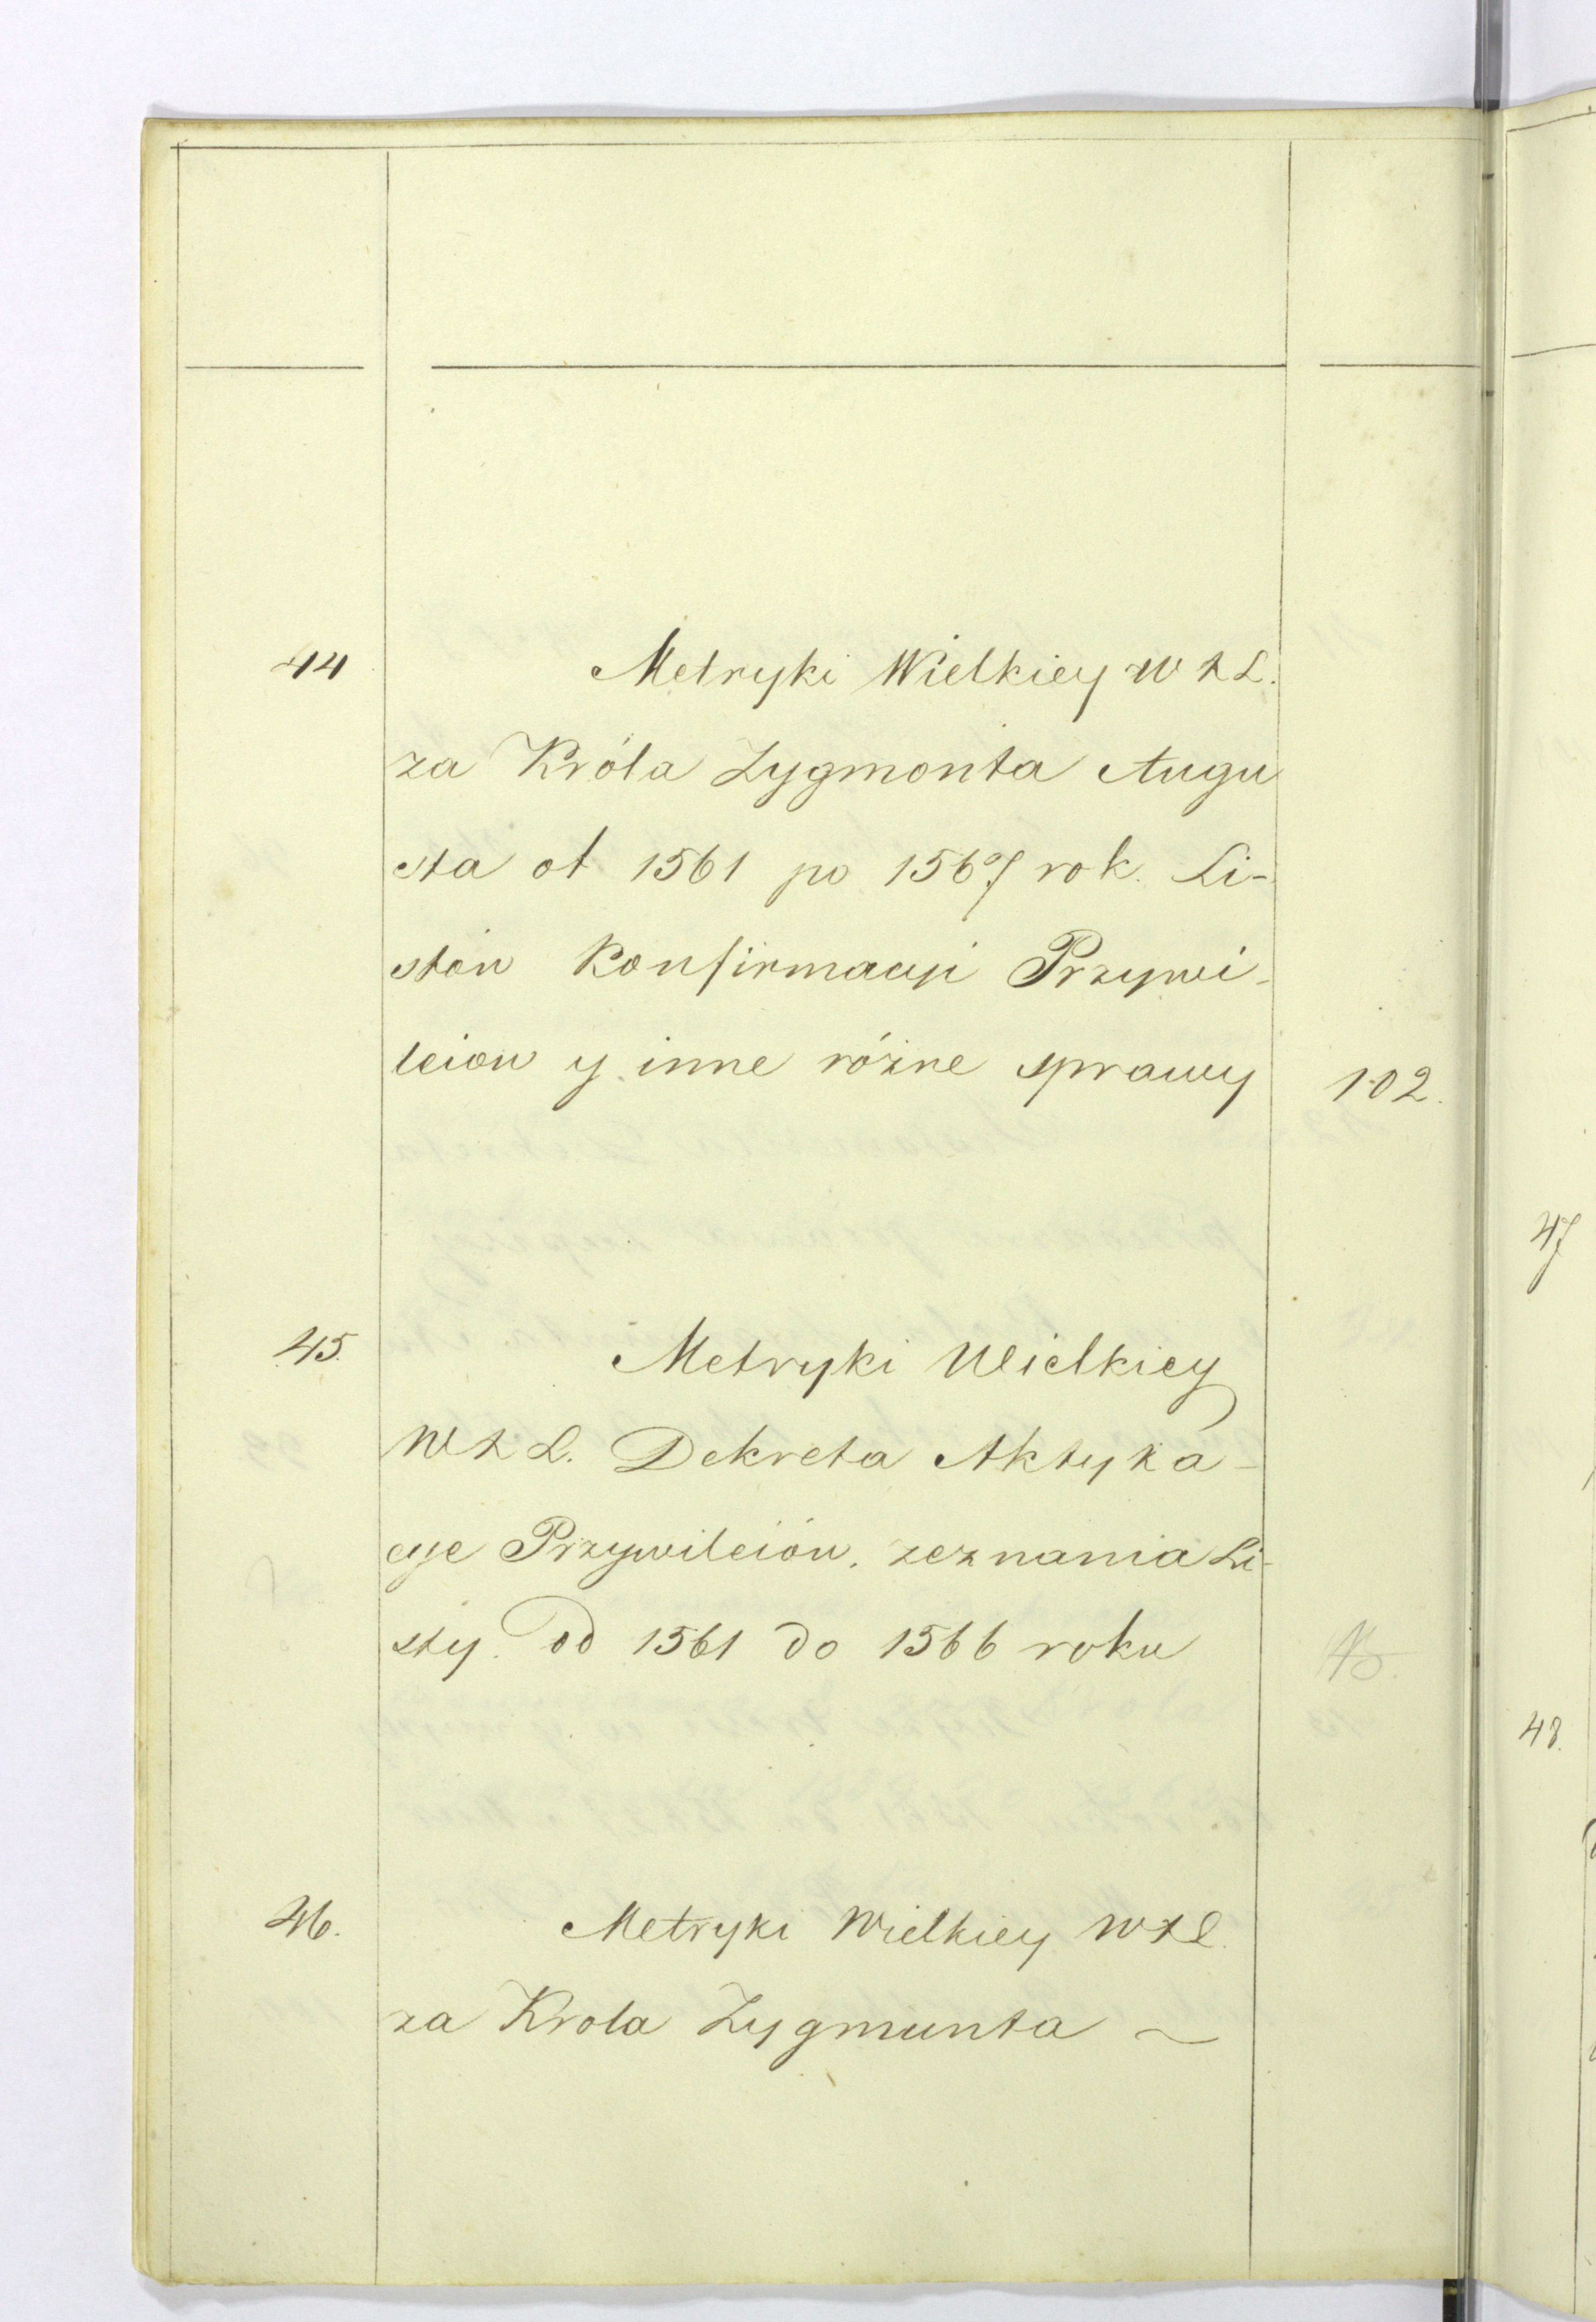 44 Metryki Wielkiey W X L.
za Króla Zygmonta Augu
sta ot 1561 po 1567 rok. Li-
stów Konfirmacyi Przywi-
leiow y inne różne sprawy 102.
45. Metryki Wielkiey
W X L. Dekreta Aktyka-
cye Przywileiów. zeznania Li-
sty. od 1561 do 1566 roku
46. Metryki Wielkiey W X L.
za Krola Zygmunta ~
47
48.